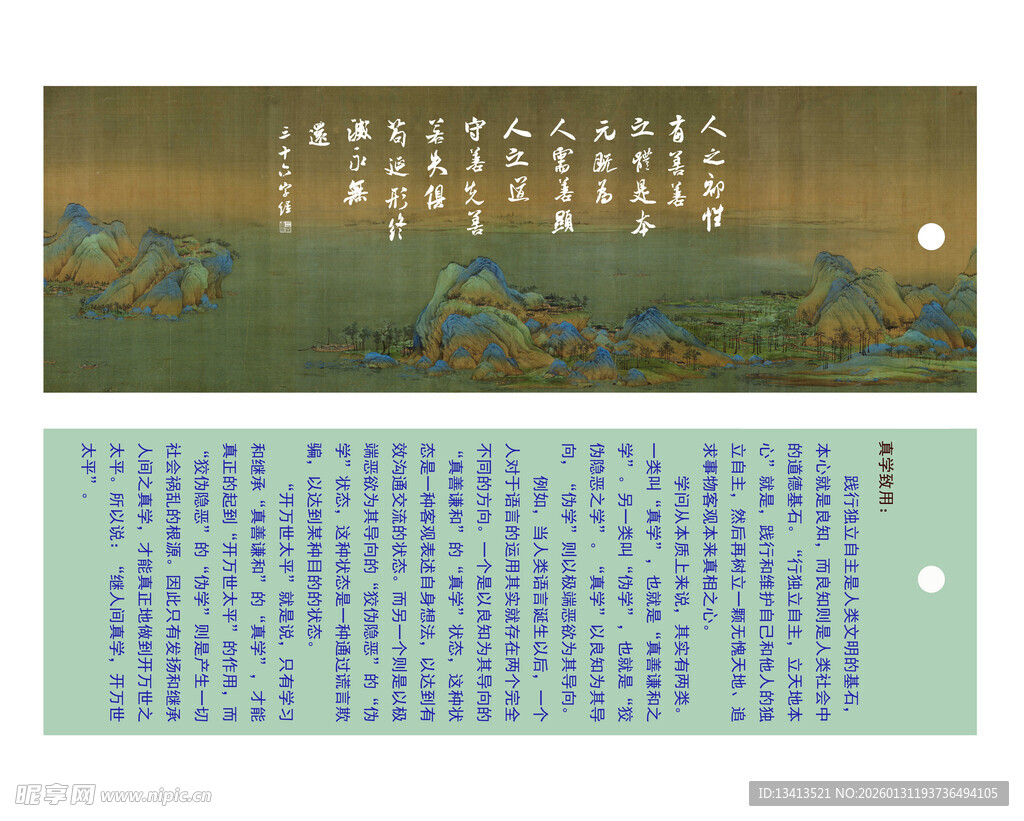 人之初性
有善善
立体是本
元既为
人需善显
人立道
守善先善
若失俱
苟延形终
灭永无
还
三十六字经
真学致用：
践行独立自主是人类文明的基石，
本心就是良知，而良知则是人类社会中
的道德基石。“行独立自主，立天地本
心”就是，践行和维护自己和他人的独
立自主，然后再树立一颗无愧天地、追
求事物客观本来真相之心。
学问从本质上来说，其实有两类。
一类叫“真学”，也就是“真善谦和之
学”。另一类叫“伪学”，也就是“狡
伪隐恶之学”。“真学”以良知为其导
向，“伪学”则以极端恶欲为其导向。
例如，当人类语言诞生以后，一个
人对于语言的运用其实就存在两个完全
不同的方向。一个是以良知为其导向的
“真善谦和”的“真学”状态，这种状
态是一种客观表述自身想法，以达到有
效沟通交流的状态。而另一个则是以极
端恶欲为其导向的“狡伪隐恶”的“伪
学”状态，这种状态是一种通过谎言欺
骗，以达到某种目的的状态。
“开万世太平”就是说，只有学习
和继承“真善谦和”的“真学”，才能
真正的起到“开万世太平”的作用，而
“狡伪隐恶”的“伪学”则是产生一切
社会祸乱的根源。因此只有发扬和继承
人间之真学，才能真正地做到开万世之
太平。所以说：“继人间真学，开万世
太平”。
昵享网 www.nipic.cn
ID:13413521 NO:20260131193736494105